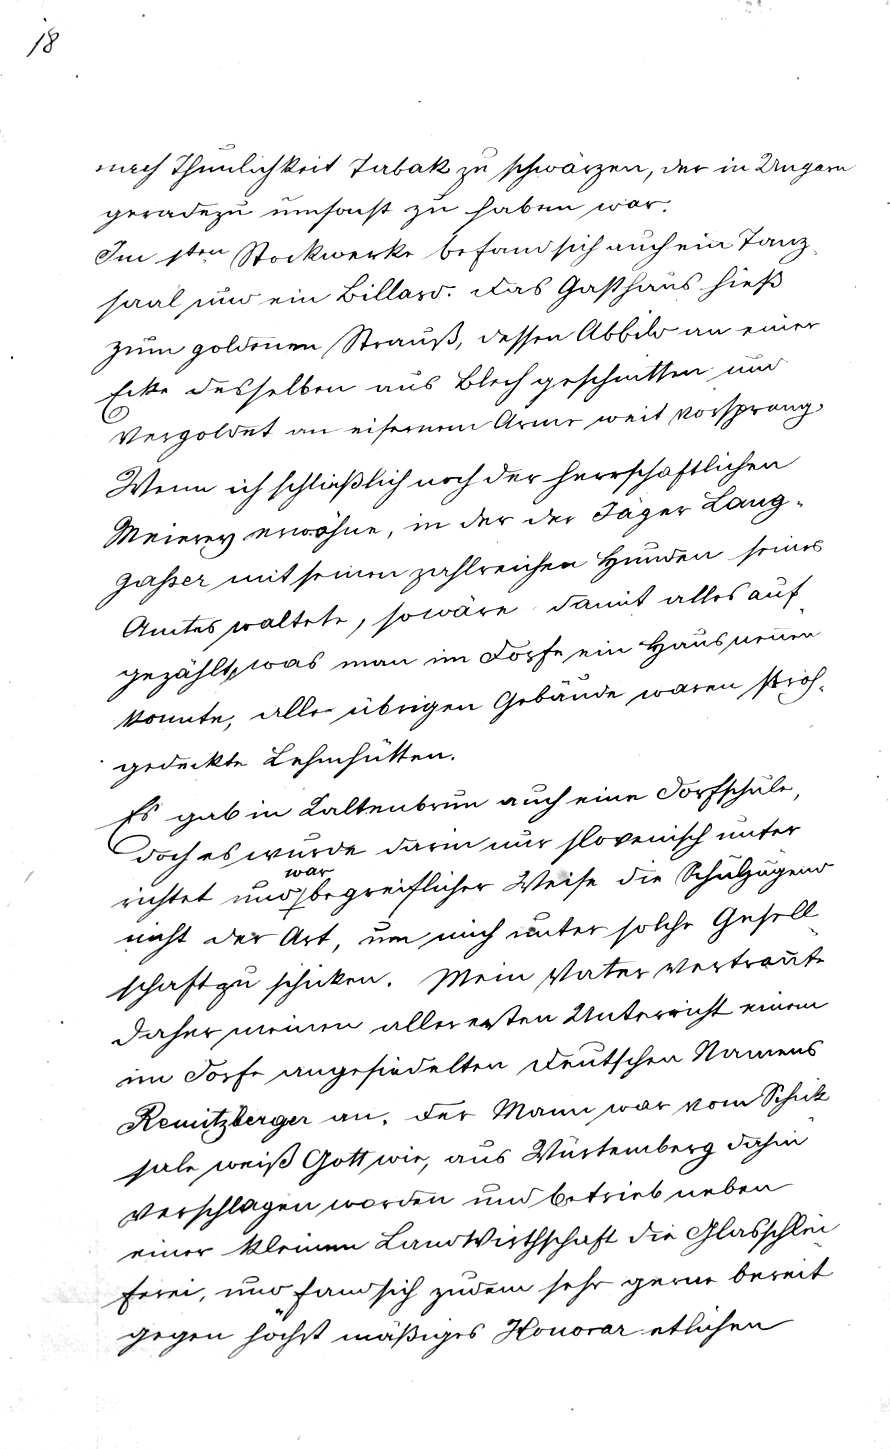 18
nach Thunlichkeit Tabak zu schwärzen, der in Ungarn
geradezu umsonst zu haben war.
Im 1ten Stockwerke befand sich auch ein Tanz-
saal und ein Billard. Das Gasthaus hieß
zum goldenen Strauß, dessen Abbild an einer
Ecke desselben aus Blech geschnitten und
vergoldet an eisernem Arme weit vorsprang.
Wenn ich schließlich noch der herrschaftlichen
Meierey erwähne, in der der Jäger Lang-
gasser mit seinen zahlreichen Hunden seines
Amtes waltete, so wäre damit alles auf-
gezählt, was man im Dorfe ein Haus nennen
konnte, alle übrigen Gebäude waren stroh-
gedeckte Lehmhütten.
Es gab in Kaltenbrun auch eine Dorfschule,
doch es wurde darin nur slovenisch unter
richtet und war begreiflicher Weise die Schuljugend
nicht der Art, um mich unter solche Gesell
schaft zu schicken. Mein Vater vertraute
daher meinen allerersten Unterricht einem
im Dorfe angesiedelten Deutschen Namens
Remitzberger an. Der Mann war vom Schick
sale weiß Gott wie, aus Würtemberg dahin
verschlagen worden und betrieb neben
einer kleinen Landwirthschaft die Glasschlei
ferei, und fand sich zudem sehr gerne bereit
gegen höchst mäßiges Honorar etlichen